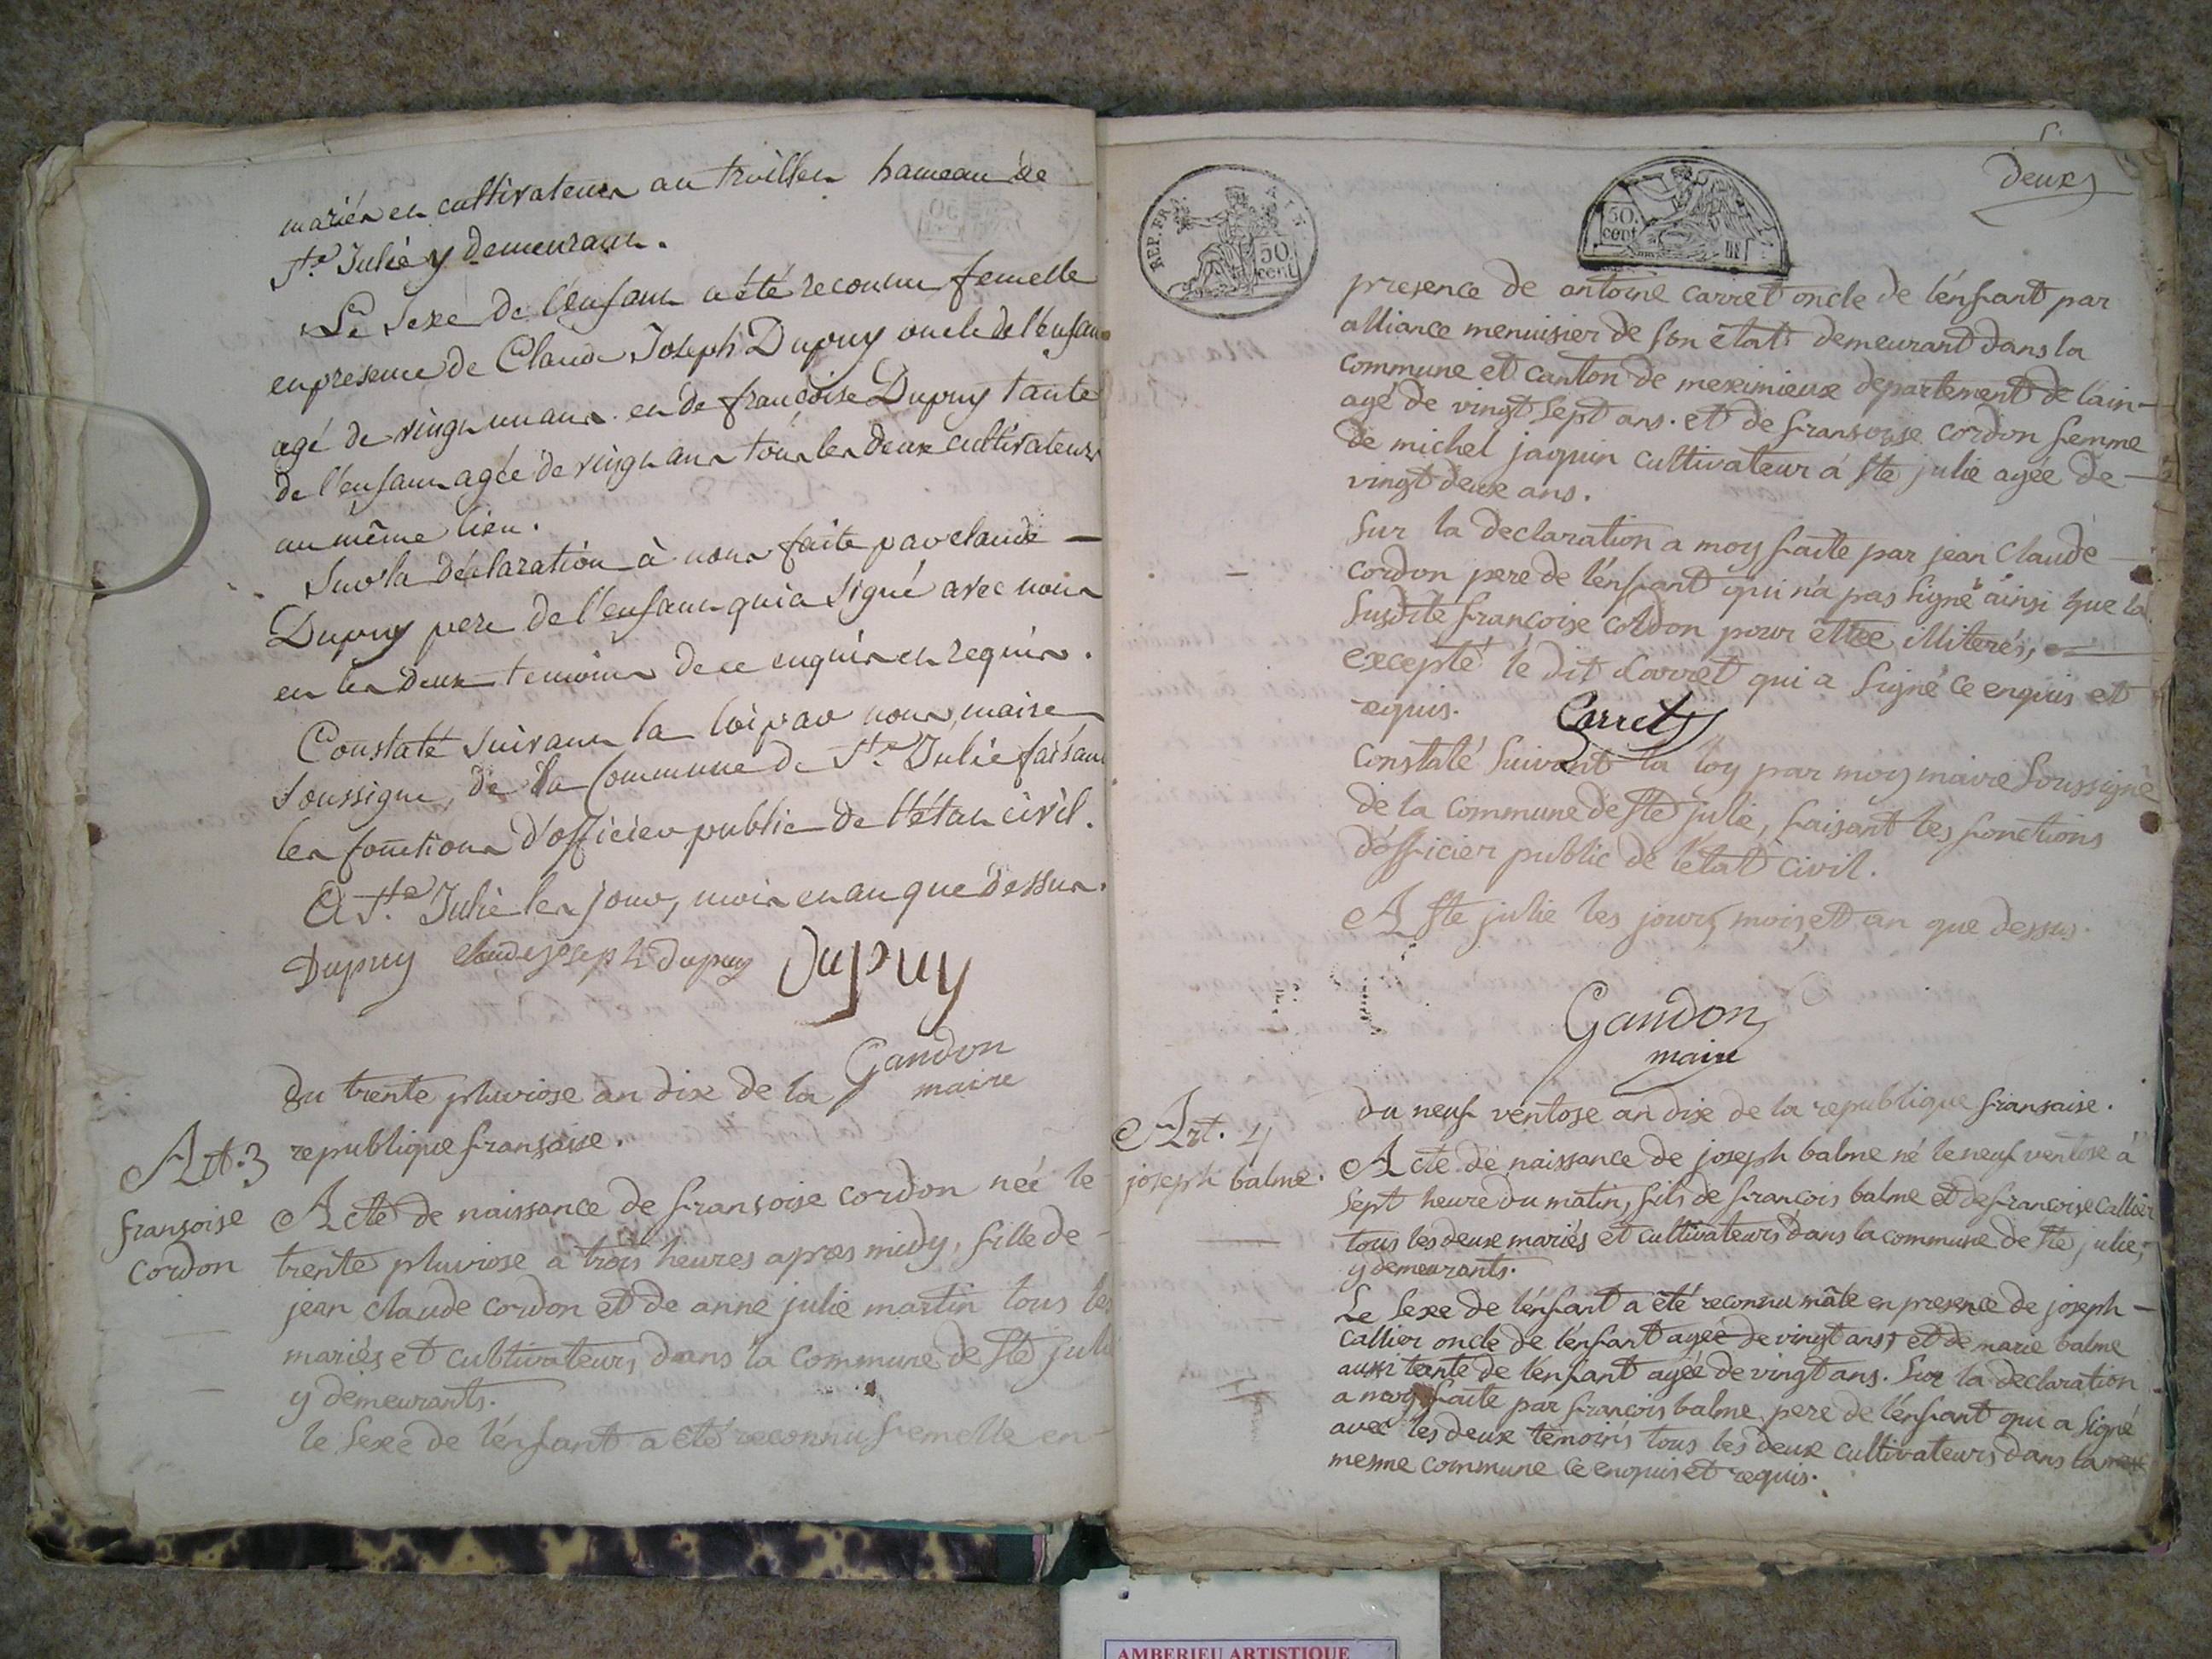 mariés et cultivateurs au truillier hameau de
Ste. Julie y demeurant.
Le sexe de l'enfant a été reconnu femelle
en presence de Claude Joseph Dupuy oncle de l'enfant
agé de vingt un ans. et de françoise Dupuy tante
de l'enfant agée de vingt ans tous les deux cultivateurs
au même lieu.
Sur la déclaration à nous faite par claude
Dupuy pere de l'enfant qui a signé avec nous
et les deux temoins de ce enquis et requis.
Constaté suivant la loi par nous, maire
soussigné, de la Commune de Ste. Julie faisant
les fonctions d'officier public de l'état civil.
A Ste. Julie les jour, mois et an que dessus.
Dupuy claude joseph dupuy Dupuy
Gandon
maire
du trente pluviose an dix de la
Art. 3 republique fransaise.
fransoise
cordon
Acte de naissance de fransoise cordon née le
trente pluviose a trois heures apres midy, fille de
jean claude cordon et de anne julie martin tous les
mariés et cultivateurs, dans la commune de Ste julie
y demeurants.
le sexe de l'enfant a eté reconnu femelle en
REP. FRA
50
cent
50.
cent
deux
presence de antoine carret oncle de l'enfant par
alliance menuisier de son état demeurant dans la
commune et canton de meximieux departement de l'ain
agé de vingt sept ans. et de fransoise cordon femme
de michel jaquin cultivateur á Ste julie agée de
vingt deux ans.
Sur la declaration a moy faite par jean claude
cordon pere de l'enfant qui n'a pas signé ainsi que la
susdite françoise cordon pour être illiterés,
excepté le dit Carret qui a signé ce enquis et
requis. Carret
Constaté suivant la loy par moy maire soussigné
de la commune de Ste julie, faisant les fonctions
d'officier public de l'état civil.
A Ste julie les jours, mois, et an que dessus.
Gandon
maire
du neuf ventose an dix de la republique fransaise.
Art. 4
joseph balme.
Acte de naissance de joseph balme né le neuf ventose à
sept heure du matin, fils de françois balme et de francoise callier
tous les deux mariés et cultivateurs dans la commune de Ste julie,
y demeurants.
Le sexe de l'enfant a été reconnu mâle en presence de joseph
callier oncle de l'enfant agée de vingt ans, et de marie balme
aussi tante de l'enfant agée de vingt ans. Sur la declaration
a moy faite par françois balme pere de l'enfant qui a signé
avec les deux témoins tous les deux cultivateurs dans la
mesme commune ce enquis et requis.
AMBERIEU ARTISTIQUE